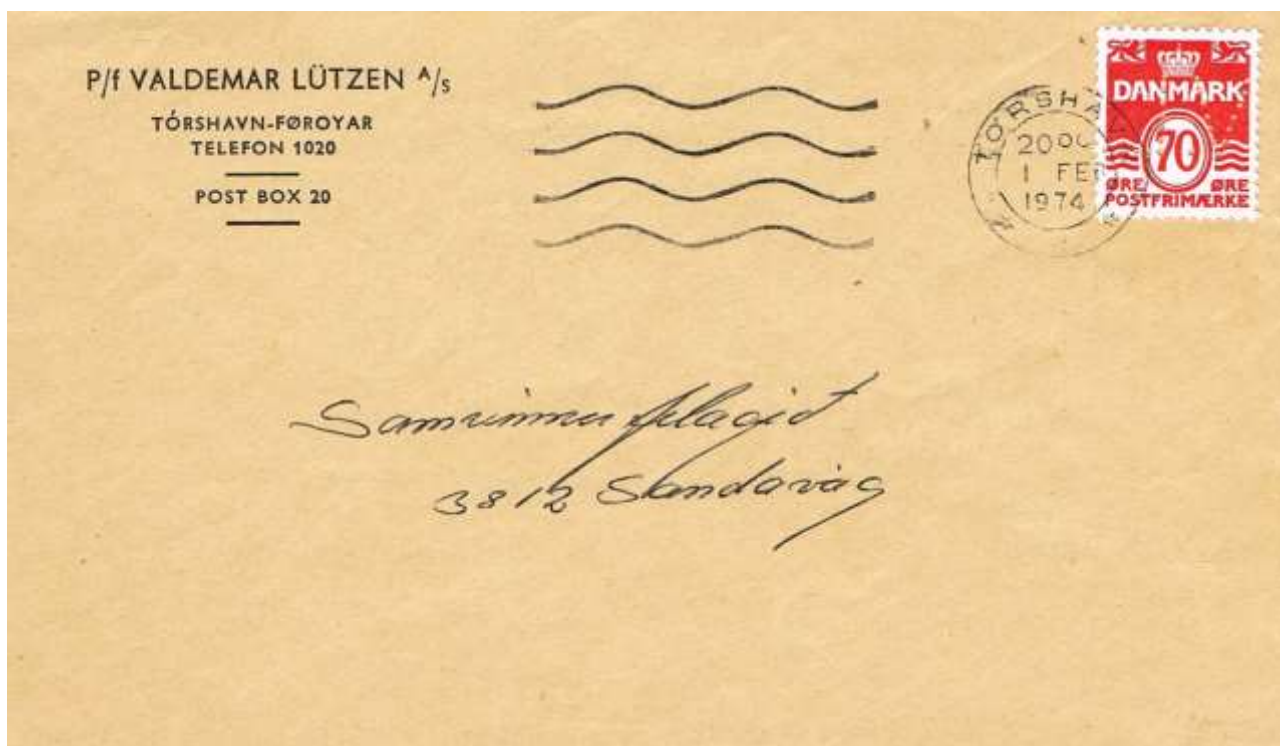 P/f VALDEMAR LÜTZEN A/s
TÓRSHAVN-FØROYAR
TELEFON 1020
POST BOX 20
TÓRSHA
20
1 FEB
1974
DANMARK
70
ØRE ØRE
POSTFRIMÆRKE
Samvinnufelagið
3812 Sandavág